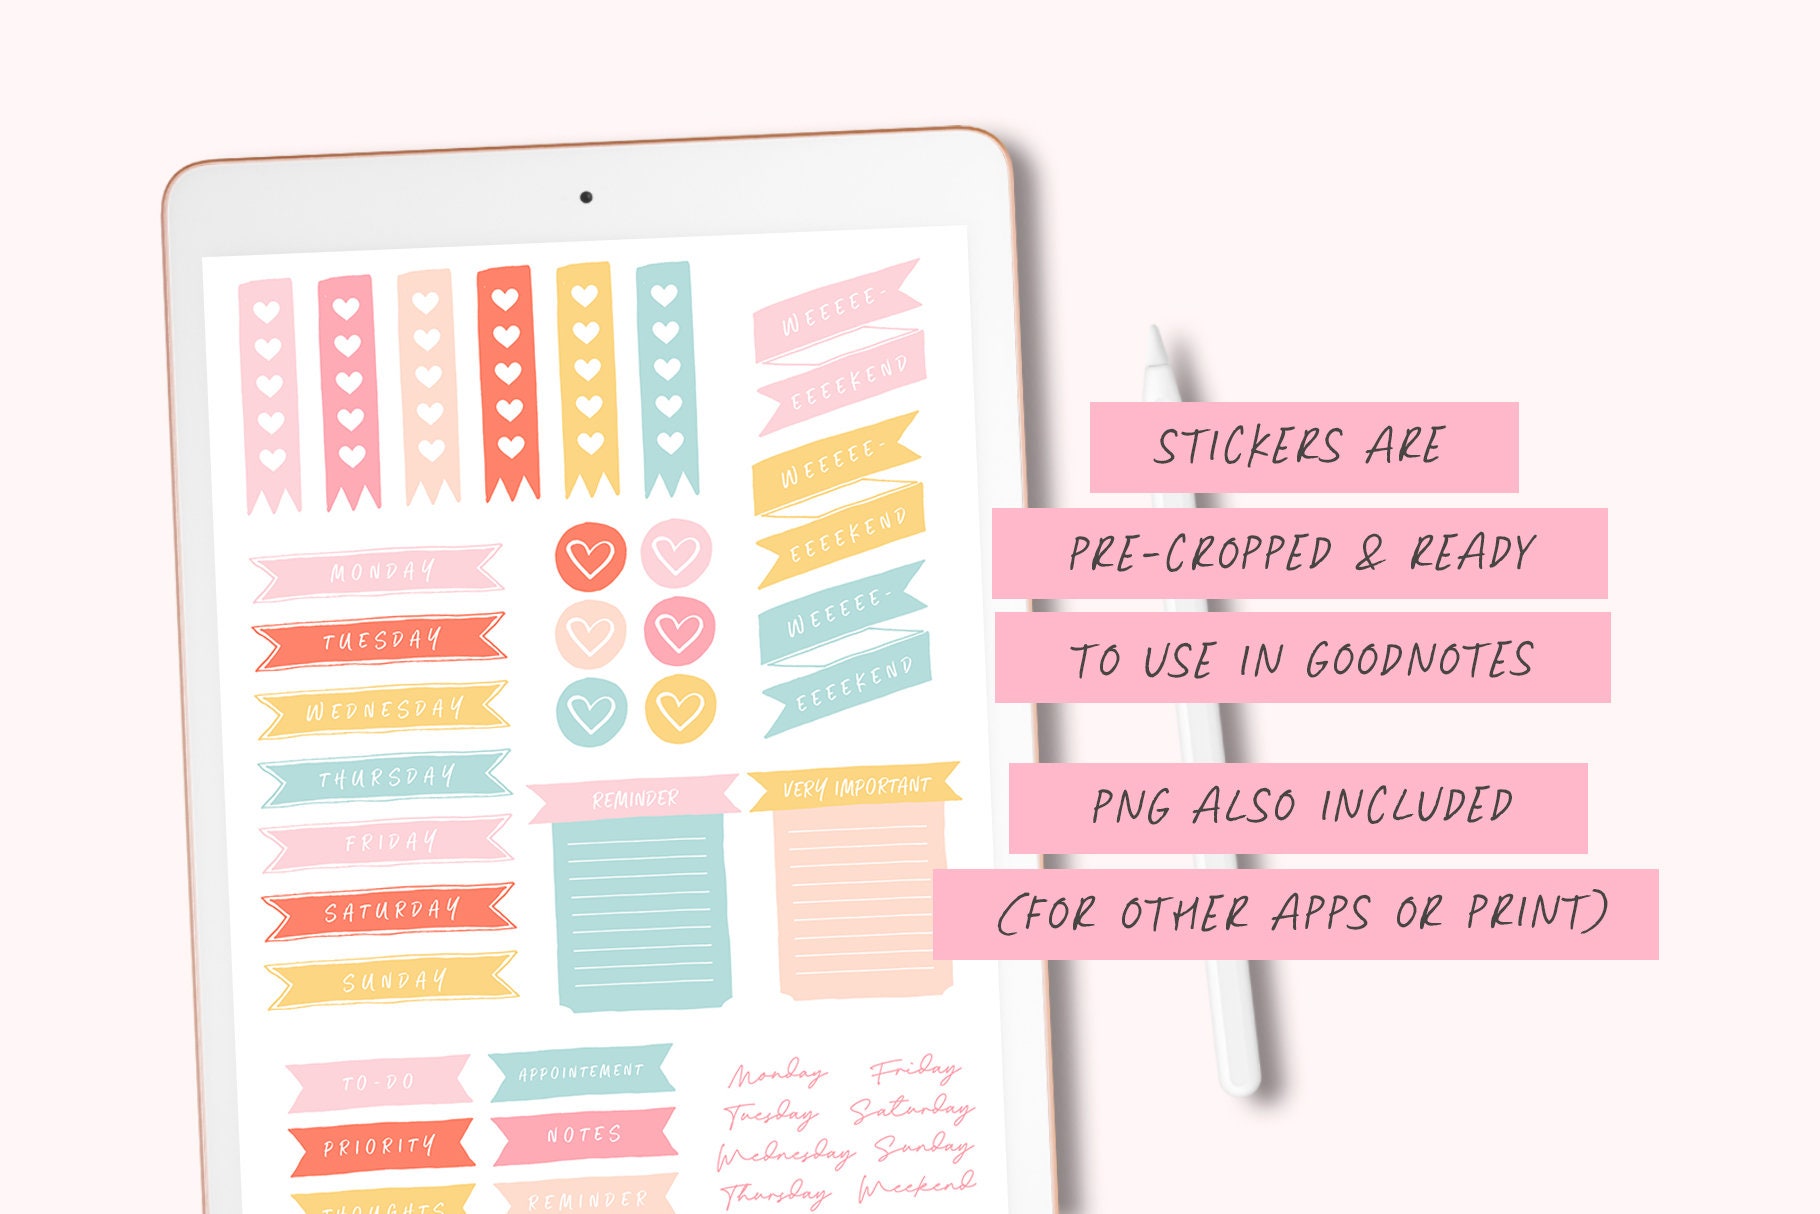 WEEEEE-
EEEEKEND
WEEEEE-
EEEEKEND
WEEEEE-
EEEEKEND
MONDAY
TUESDAY
WEDNESDAY
THURSDAY
FRIDAY
SATURDAY
SUNDAY
REMINDER
VERY IMPORTANT
TO-DO
APPOINTEMENT
PRIORITY
NOTES
THOUGHTS
REMINDER
Monday Friday
Tuesday Saturday
Wednesday Sunday
Thursday Weekend
STICKERS ARE
PRE-CROPPED & READY
TO USE IN GOODNOTES
PNG ALSO INCLUDED
(FOR OTHER APPS OR PRINT)